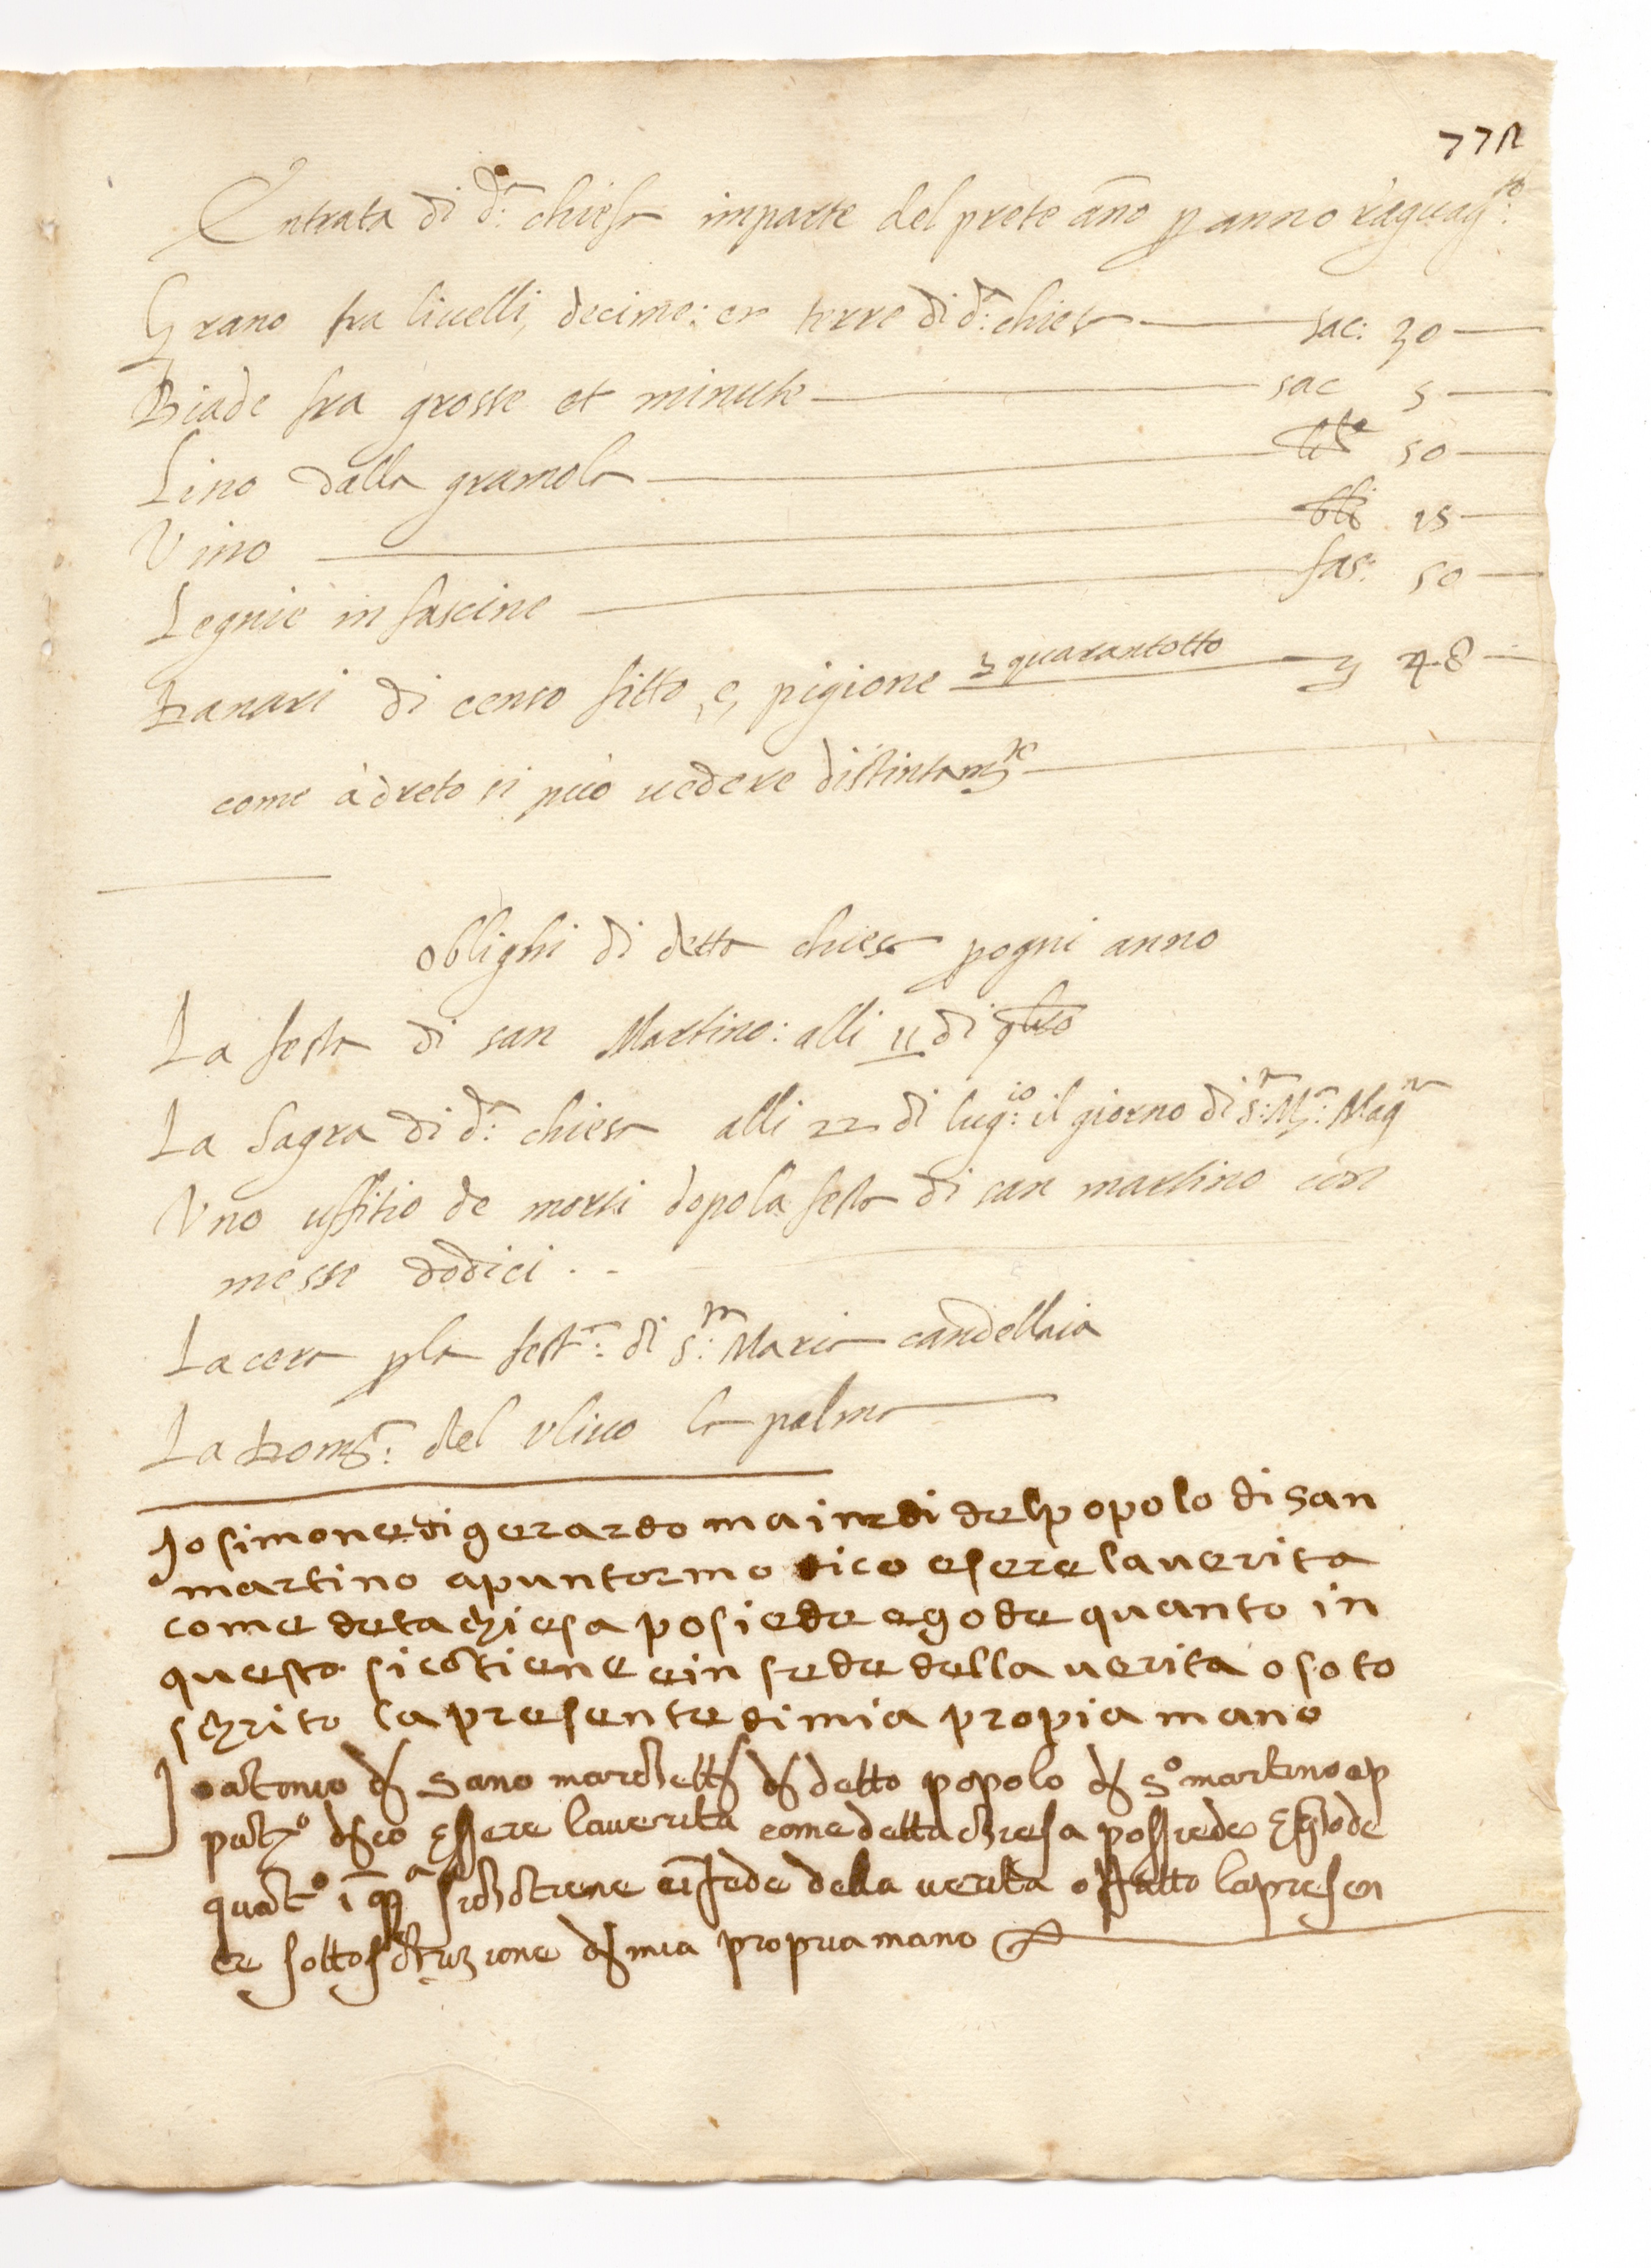 772
Entrata di d.ª chiesa in parte del prete año p anno raguag.to
Grano fra livelli, decime: en terre di d.ª chiesa sac: 30
Biade fra grosse et minute sac 5
Lino dalla gramola 50
Vino bli 15
Legnie in fascine fas: 50
Danari di censo fitto, e, pigione quarantotto 48
come à dreto si può vedere distintam.te
Oblighi di detta chiesa p ogni anno
La festa di san Martino: alli 11 di 9bro
La Sagra di d.ª chiesa alli 22 di lug:io il giorno di S:ta M.ª: Mag.na
Uno uffitio de morti dopo la festa di san martino con
messe dodici
La cera p la fest.ª: di S:ta Maria candellaia
La dom.ca: del ulivo la palma
Io simone di gerardo mainardi del popolo di san
martino apuntormo dico esere la verita
come deta chiesa posiede e gode quanto in
questo si cotiene e in fede della verita o soto
schrito la presente di mia propia mano
Io atonio di Sano marchetti di detto popolo di S.º martino a p
putor.º dico essere la verita come detta chiesa possiede e ghode
quat.º i q.ª si chotiene e i fede della verita o fatto la presen
te sottoschrizione di mia propria mano